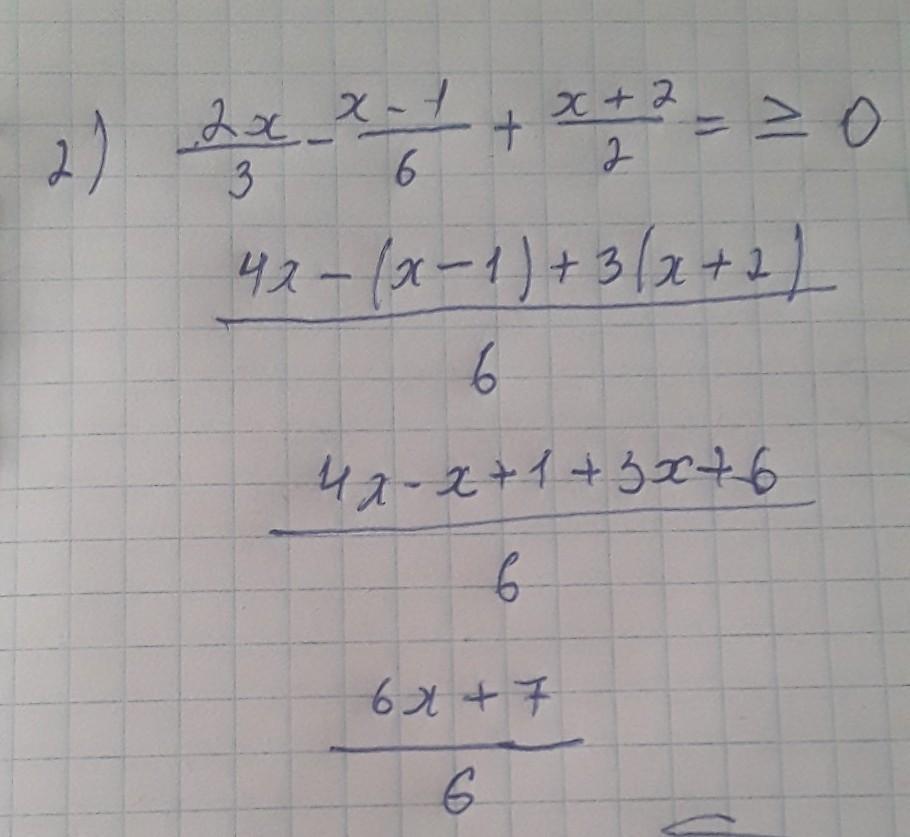 2) 2x/3 - x - 1/6 + x + 2/2 = ≥ 0
4x - (x - 1) + 3(x + 2)
6
4x - x + 1 + 3x + 6
6
6x + 7
6